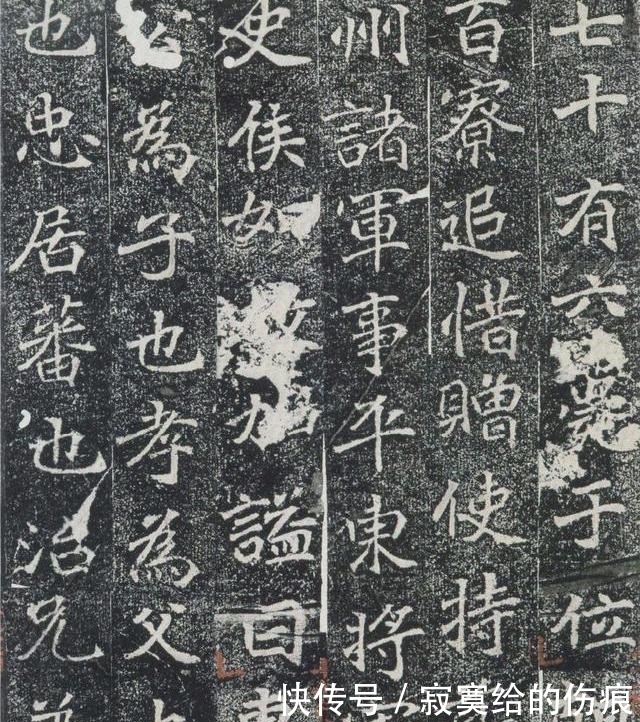 七十有六薨于位
百寮追惜贈使持
州諸軍事平東將
史侯如故加謚曰
公為子也孝為父
也忠居蕃也治兄
快传号 / 寂寞给的伤痕